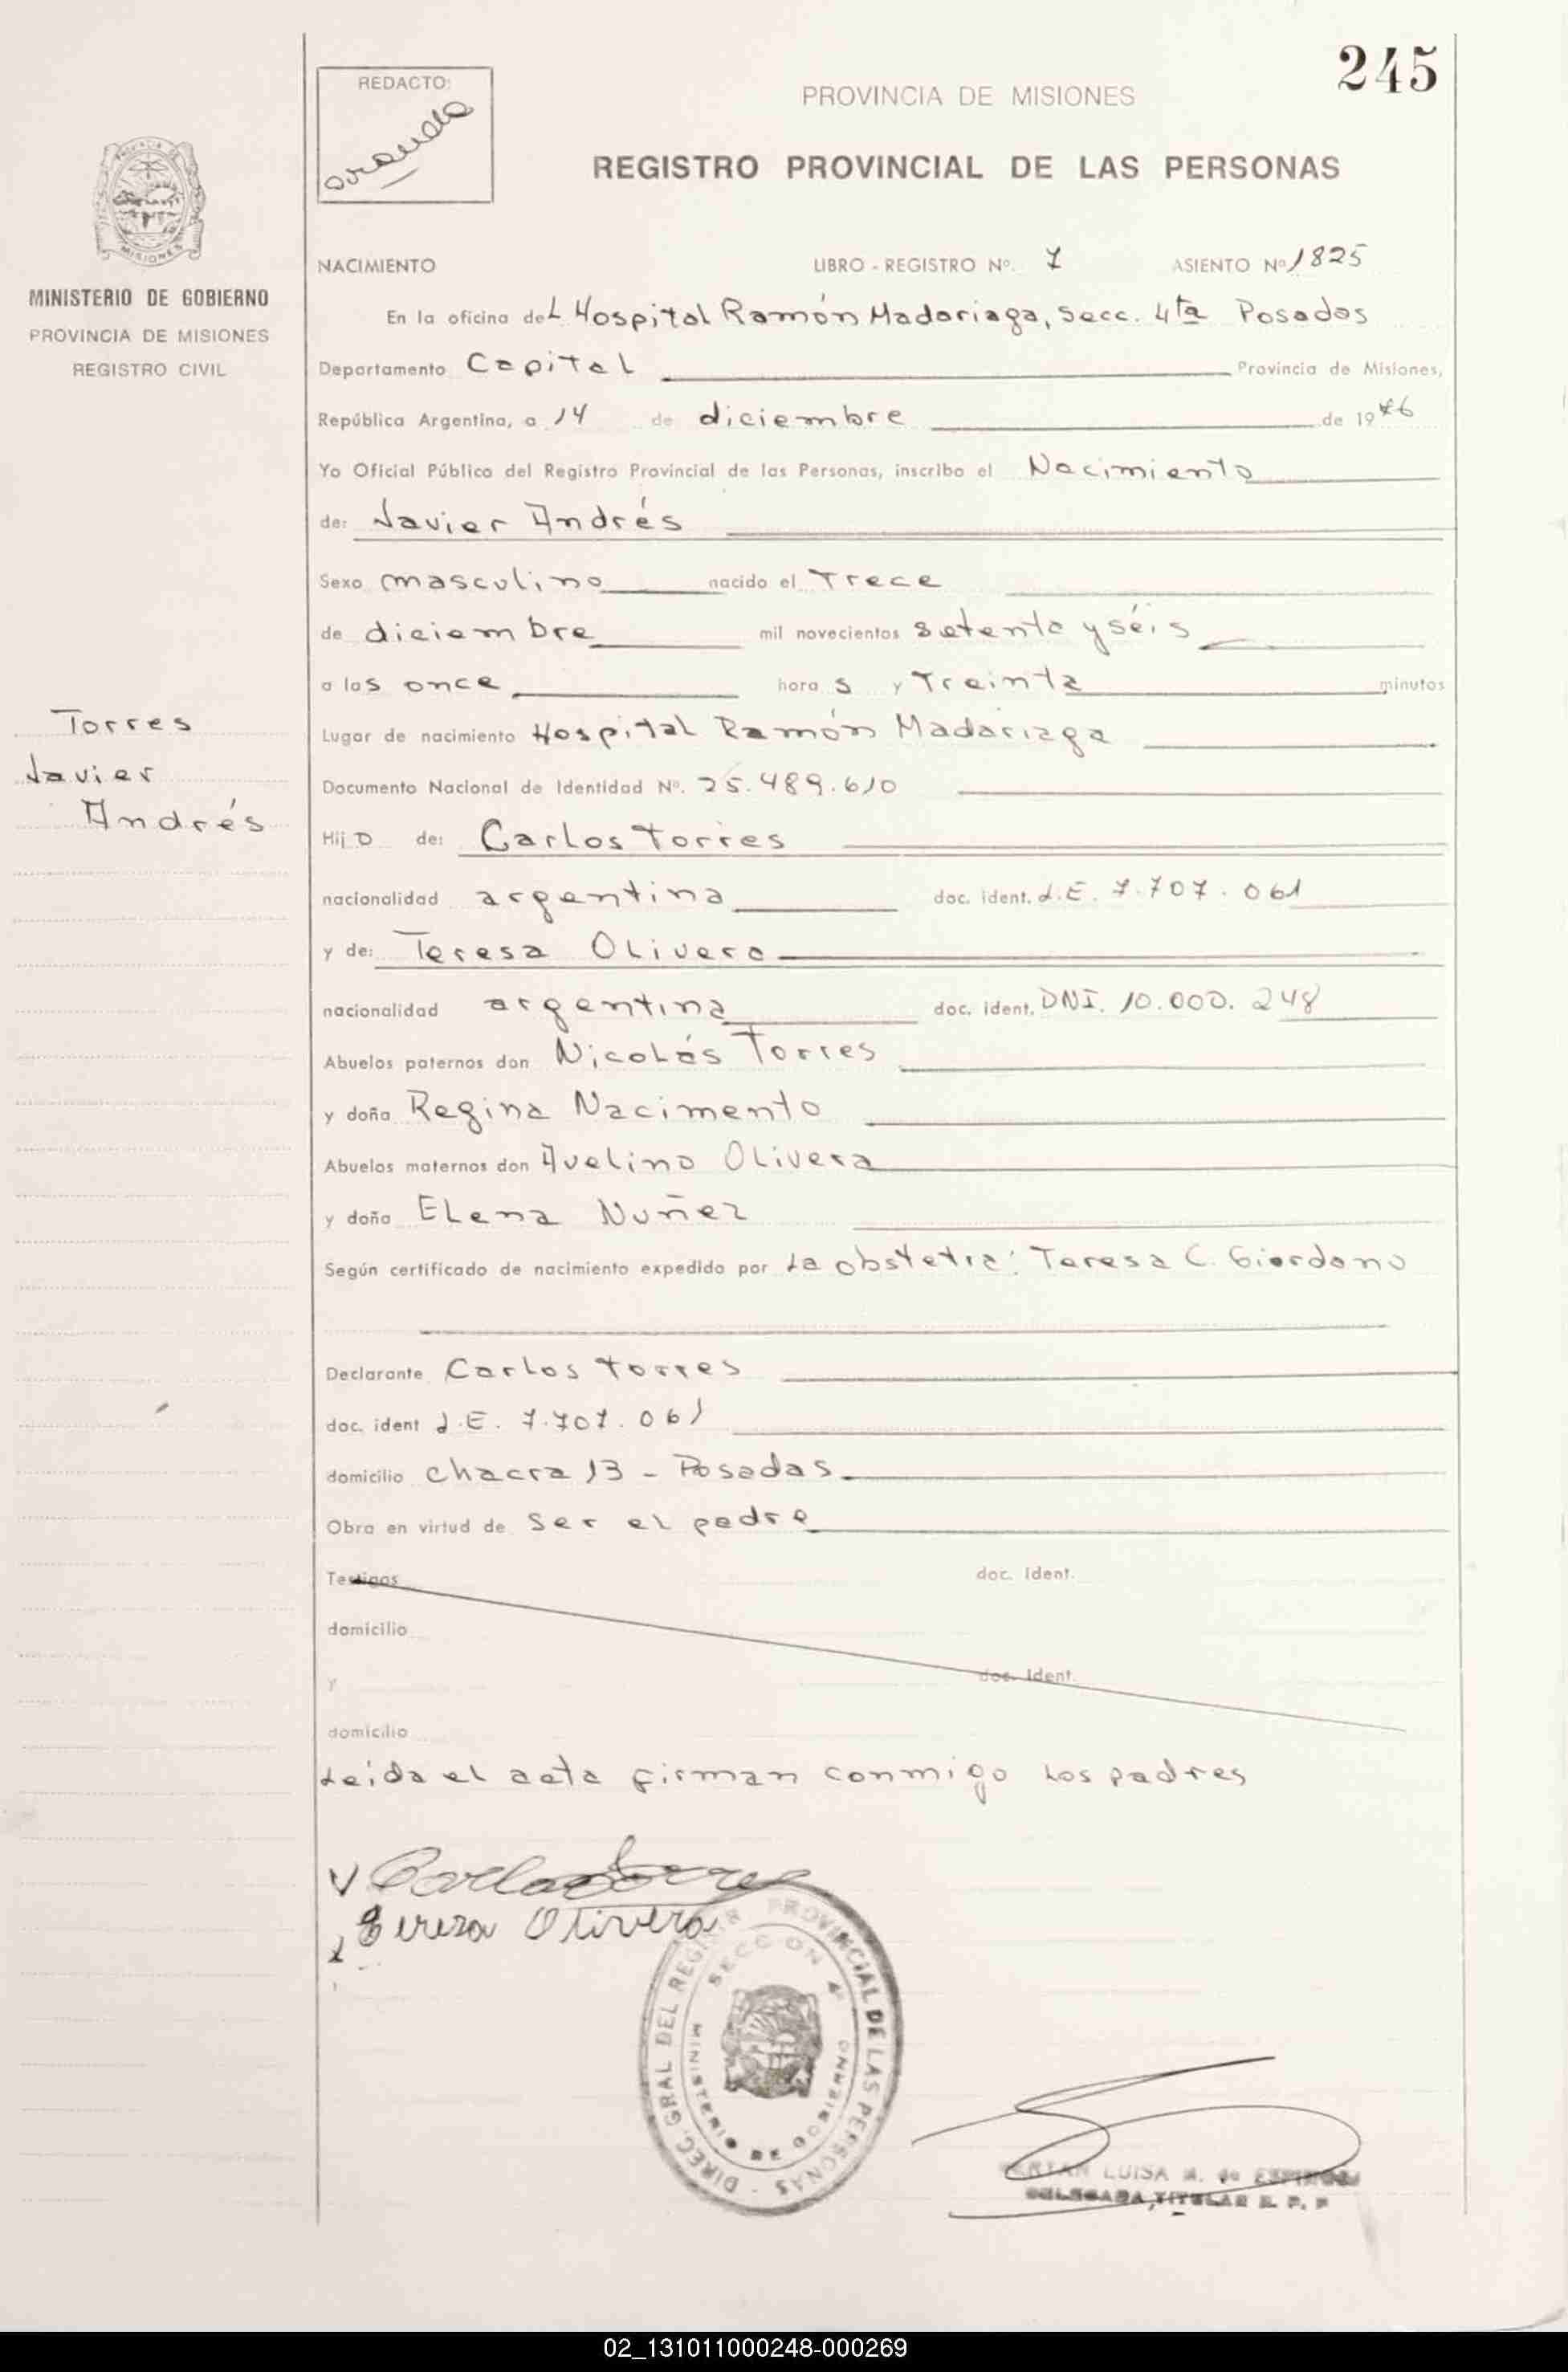 245
REDACTO:
aranda
PROVINCIA DE MISIONES
REGISTRO PROVINCIAL DE LAS PERSONAS
PROVINCIA DE
MISIONES
MINISTERIO DE GOBIERNO
PROVINCIA DE MISIONES
REGISTRO CIVIL
NACIMIENTO LIBRO - REGISTRO Nº. 7 ASIENTO Nº 1825
En la oficina del Hospital Ramón Madariaga, Secc. 4ta Posadas
Departamento Capital Provincia de Misiones,
República Argentina, a 14 de diciembre de 1976
Yo Oficial Público del Registro Provincial de las Personas, inscribo el Nacimiento
de: Javier Andrés
Sexo masculino nacido el Trece
de diciembre mil novecientos setenta y séis
a las once horas y Treinta minutos
Torres
Javier
Andrés
Lugar de nacimiento Hospital Ramón Madariaga
Documento Nacional de Identidad Nº. 25.489.610
Hijo de: Carlos Torres
nacionalidad argentina doc. ident. L.E. 7.707.061
y de: Teresa Olivera
nacionalidad argentina doc. ident. DNI. 10.000.248
Abuelos paternos don Nicolás Torres
y doña Regina Nacimento
Abuelos maternos don Avelino Olivera
y doña Elena Nuñez
Según certificado de nacimiento expedido por La obstetra: Teresa C. Giordano
Declarante Carlos Torres
doc. ident L.E. 7.707.061
domicilio chacra 13 - Posadas
Obra en virtud de ser el padre
Testigos doc. Ident.
domicilio
y doc. Ident.
domicilio
Leida el acta firman conmigo los padres
Carlos Torres
Teresa Olivera
DIREC. GRAL DEL REGISTR PROVINCIAL DE LAS PERSONAS
SECCION 4ª
MINISTERIO DE GOBIERNO
LUISA M. de ESPINOSA
DELEGADA TITULAR R. P. P
02_131011000248-000269